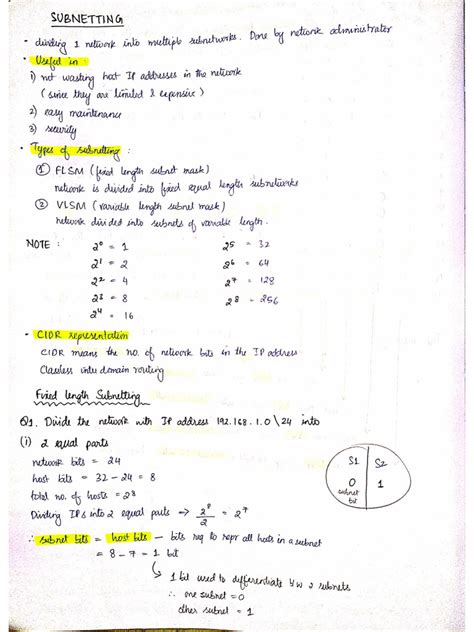 SUBNETTING
- dividing 1 network into multiple subnetworks. Done by network administrator
• Useful in
1) not wasting host IP addresses in the network
( since they are limited & expensive )
2) easy maintenance
3) security
• Types of subnetting :
① FLSM ( fixed length subnet mask )
network is divided into fixed equal length subnetworks
② VLSM ( variable length subnet mask )
network divided into subnets of variable length.
NOTE : 2⁰ = 1 2⁵ = 32
2¹ = 2 2⁶ = 64
2² = 4 2⁷ = 128
2³ = 8 2⁸ = 256
2⁴ = 16
• CIDR representation
CIDR means the no. of network bits in the IP address
Classless inter domain routing
Fixed length Subnetting
Q1. Divide the network with IP address 192.168.1.0\24 into
(i) 2 equal parts
network bits = 24
host bits = 32 - 24 = 8
total no. of hosts = 2⁸
Dividing IPs into 2 equal parts → 2⁸/2 = 2⁷
∴ subnet bits = host bits - bits req to repr all hosts in a subnet
= 8 - 7 - 1 bit
↳ 1 bit used to differentiate b/w 2 subnets
∴ one subnet = 0
other subnet = 1
S1 S2
0 1
subnet
bit